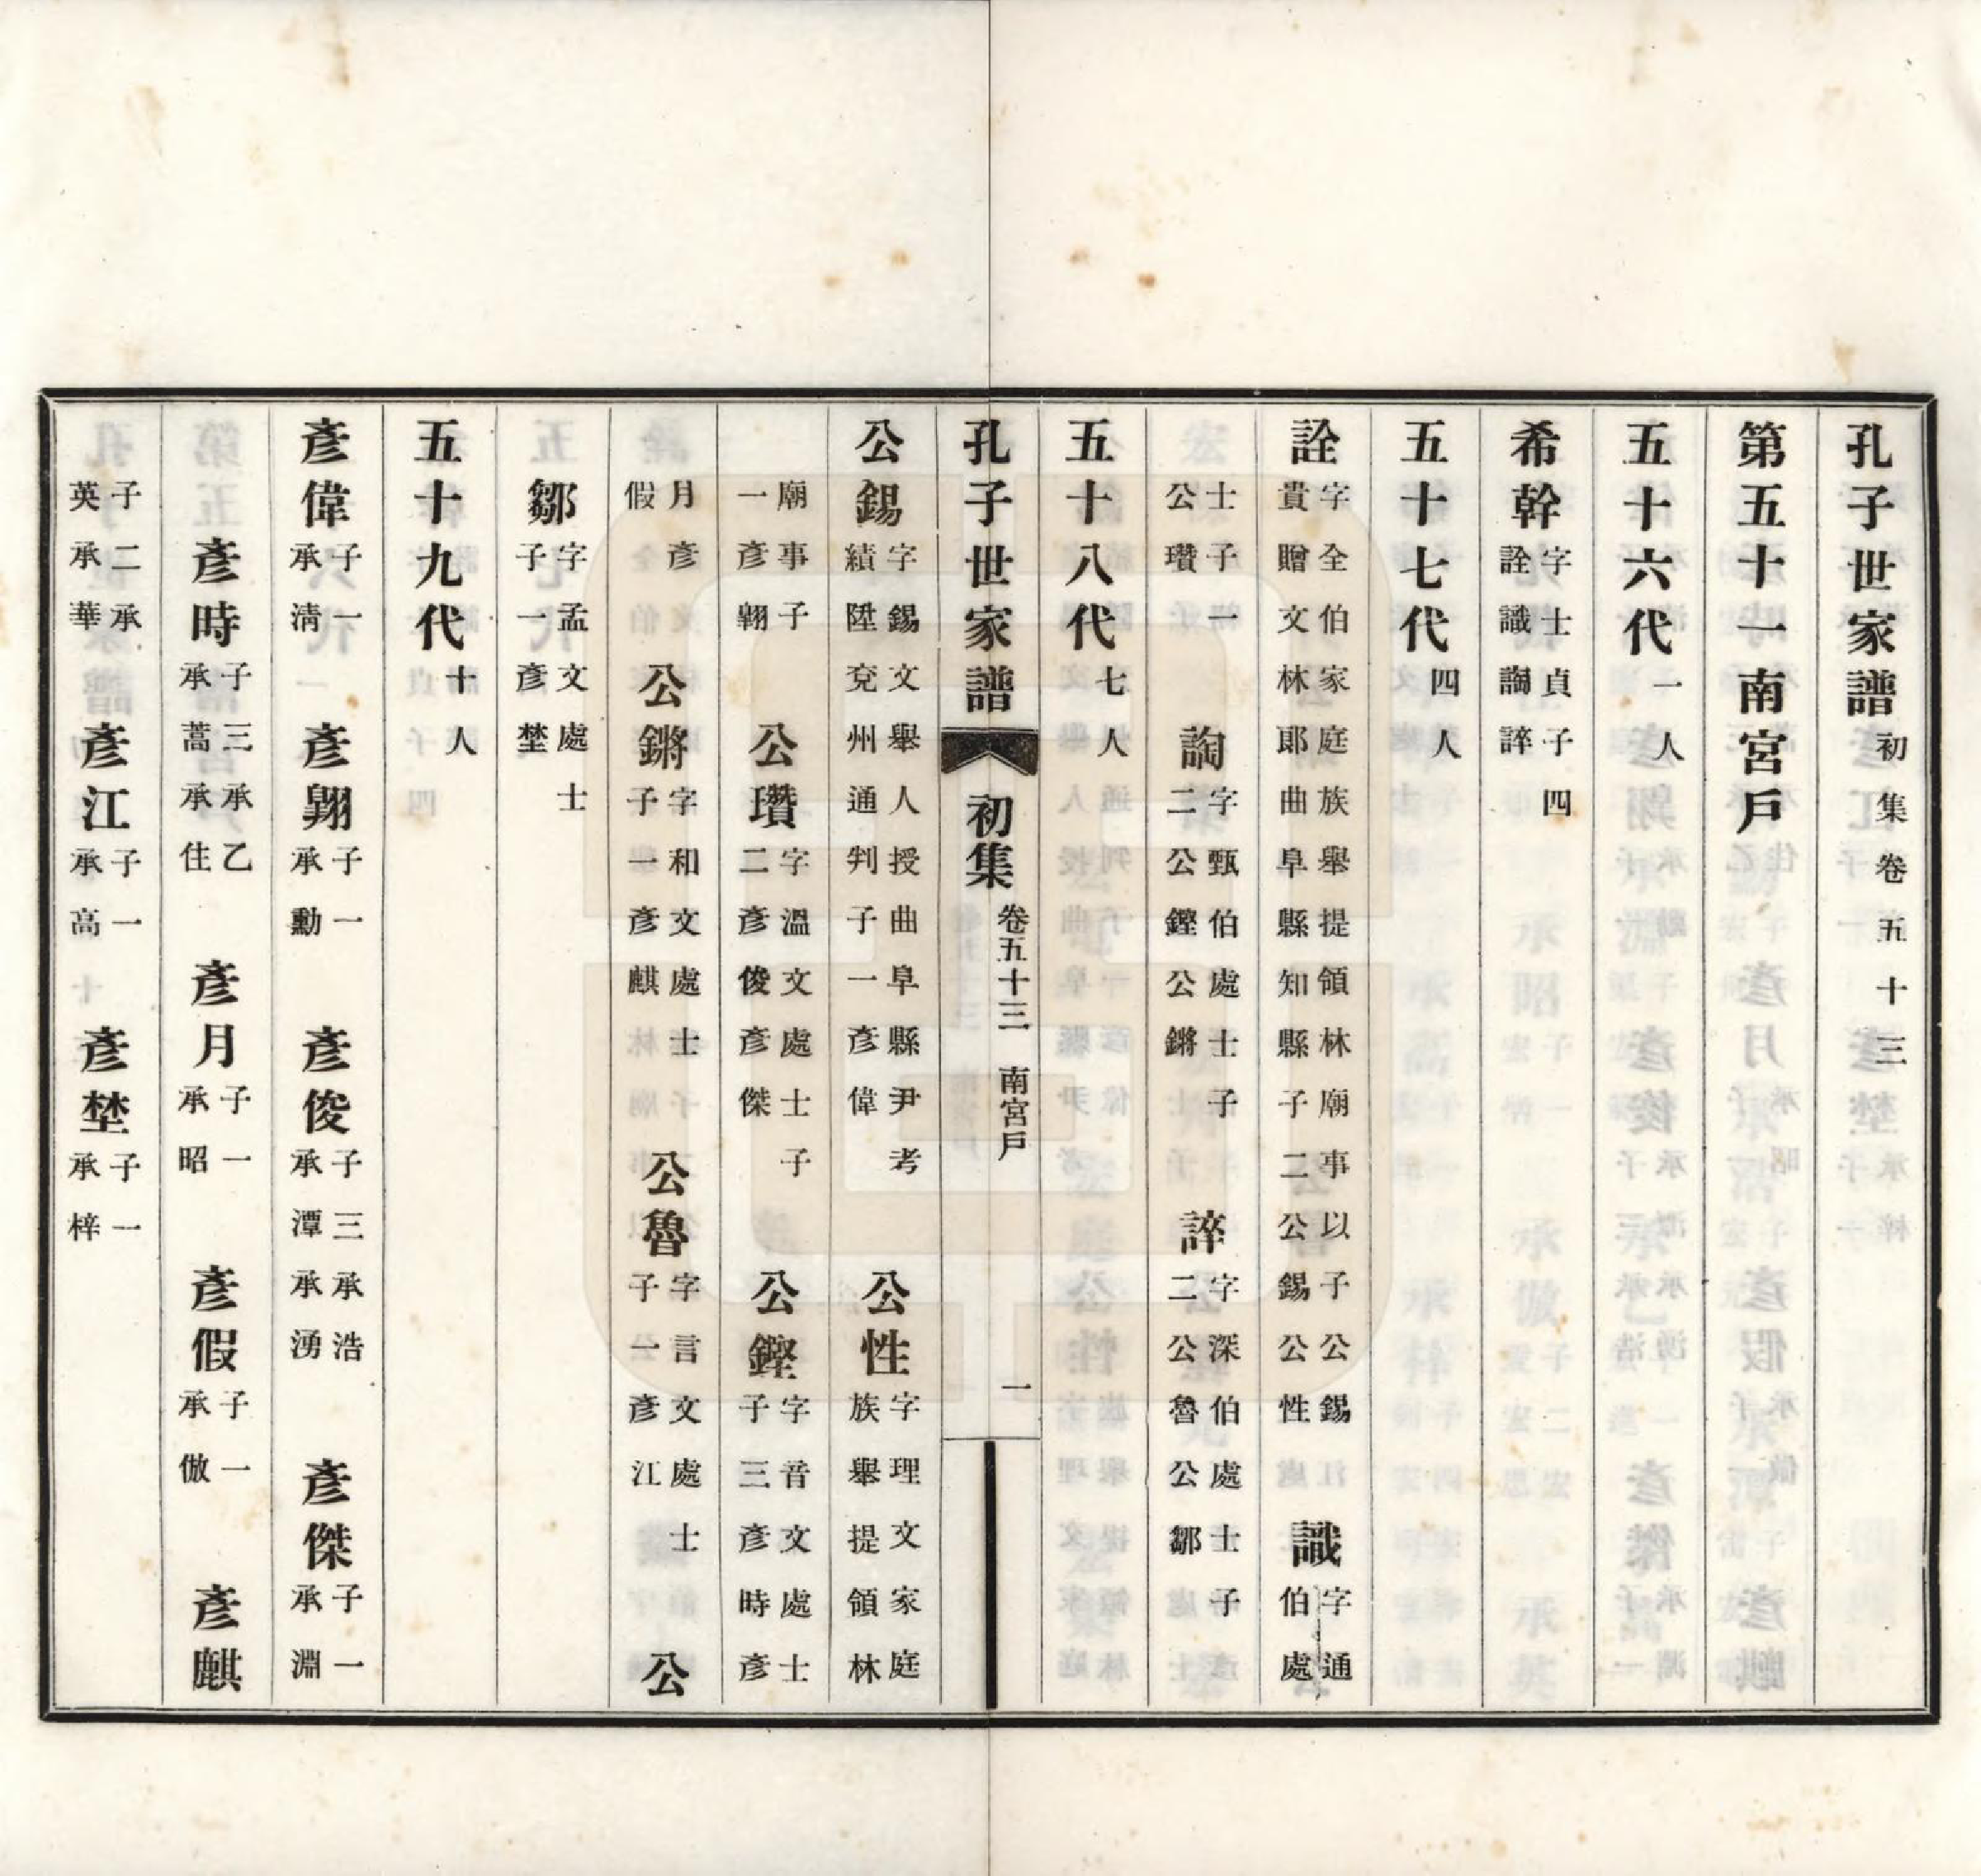 孔子世家譜初集卷五十三
第五十一南宮戶
五十六代一人
希幹字士貞子四詮識謅誶
五十七代四人
詮字全伯家庭族舉提領林廟事以子公錫貴贈文林郞曲阜縣知縣子二公錫公性 識字通伯處
士子一公瓚 謅字甄伯處士子二公鏗公鏘 誶字深伯處士子二公魯公鄒
五十八代七人
孔子世家譜 初集 卷五十三 南宮戶 一
公錫字錫文舉人授曲阜縣尹考績陞兗州通判子一彥偉 公性字理文家庭族舉提領林
廟事子一彥翱 公瓚字溫文處士子二彥俊彥傑 公鏗字音文處士子三彥時彥
月彥假 公鏘字和文處士子一彥麒 公魯字言文處士子一彥江 公
鄒字孟文處士子一彥埜
五十九代十人
彥偉子一承淸 彥翱子一承勳 彥俊子三承浩承潭承湧 彥傑子一承淵
彥時子三承乙承蒿承住 彥月子一承昭 彥假子一承倣 彥麒
子二承英承華 彥江子一承高 彥埜子一承梓